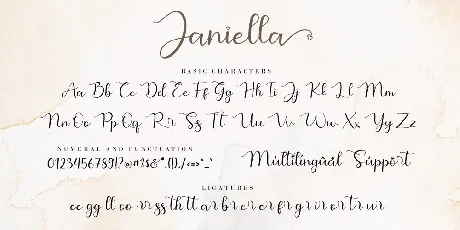 Janiella
BASIC CHARACTERS
Aa Bb Cc Dd Ee Ff Gg Hh Ii Jj Kk Ll Mm
Nn Oo Pp Qq Rr Ss Tt Uu Vv Ww Xx Yy Zz
NUMERAL AND PUNCTUATION
Multilingual Support
LIGATURES
ee gg ll oo rr ss th tt ar br cr er fr gr ir or tr ur